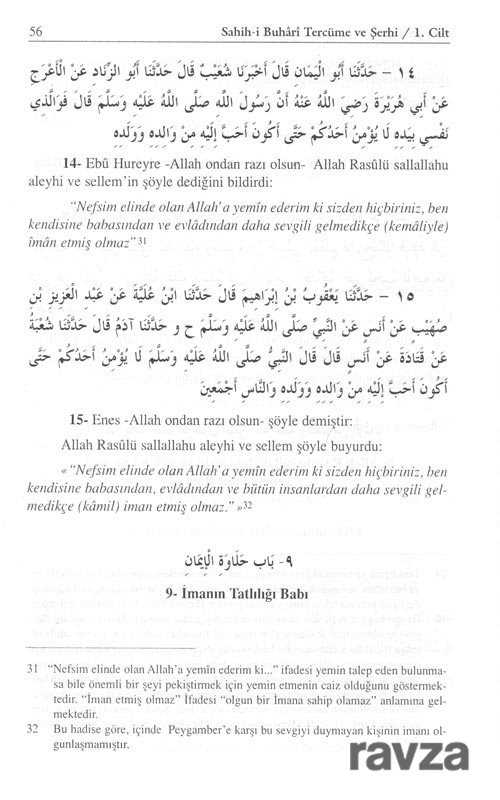 56
Sahih-i Buhârî Tercüme ve Şerhi / 1. Cilt
١٤ - حَدَّثَنَا أَبُو الْيَمَانِ قَالَ أَخْبَرَنَا شُعَيْبٌ قَالَ حَدَّثَنَا أَبُو الزِّنَادِ عَنْ الْأَعْرَجِ
عَنْ أَبِي هُرَيْرَةَ رَضِيَ اللَّهُ عَنْهُ أَنَّ رَسُولَ اللَّهِ صَلَّى اللَّهُ عَلَيْهِ وَسَلَّمَ قَالَ فَوَالَّذِي
نَفْسِي بِيَدِهِ لَا يُؤْمِنُ أَحَدُكُمْ حَتَّى أَكُونَ أَحَبَّ إِلَيْهِ مِنْ وَالِدِهِ وَوَلَدِهِ
14- Ebû Hureyre -Allah ondan razı olsun- Allah Rasûlü sallallahu
aleyhi ve sellem'in şöyle dediğini bildirdi:
“Nefsim elinde olan Allah'a yemîn ederim ki sizden hiçbiriniz, ben
kendisine babasından ve evlâdından daha sevgili gelmedikçe (kemâliyle)
îmân etmiş olmaz” 31
١٥ - حَدَّثَنَا يَعْقُوبُ بْنُ إِبْرَاهِيمَ قَالَ حَدَّثَنَا ابْنُ عُلَيَّةَ عَنْ عَبْدِ الْعَزِيزِ بْنِ
صُهَيْبٍ عَنْ أَنَسٍ عَنْ النَّبِيِّ صَلَّى اللَّهُ عَلَيْهِ وَسَلَّمَ ح و حَدَّثَنَا آدَمُ قَالَ حَدَّثَنَا شُعْبَةُ
عَنْ قَتَادَةَ عَنْ أَنَسٍ قَالَ قَالَ النَّبِيُّ صَلَّى اللَّهُ عَلَيْهِ وَسَلَّمَ لَا يُؤْمِنُ أَحَدُكُمْ حَتَّى
أَكُونَ أَحَبَّ إِلَيْهِ مِنْ وَالِدِهِ وَوَلَدِهِ وَالنَّاسِ أَجْمَعِينَ
15- Enes -Allah ondan razı olsun- şöyle demiştir:
Allah Rasûlü sallallahu aleyhi ve sellem şöyle buyurdu:
« “Nefsim elinde olan Allah'a yemîn ederim ki sizden hiçbiriniz, ben
kendisine babasından, evlâdından ve bütün insanlardan daha sevgili gel-
medikçe (kâmil) iman etmiş olmaz.” »32
٩- بَاب حَلَاوَةِ الْإِيمَانِ
9- İmanın Tatlılığı Babı
31 “Nefsim elinde olan Allah'a yemîn ederim ki...” ifadesi yemin talep eden bulunma-
sa bile önemli bir şeyi pekiştirmek için yemin etmenin caiz olduğunu göstermek-
tedir. “İman etmiş olmaz” İfadesi “olgun bir İmana sahip olamaz” anlamına gel-
mektedir.
32 Bu hadise göre, içinde Peygamber'e karşı bu sevgiyi duymayan kişinin imanı ol-
gunlaşmamıştır.
ravza